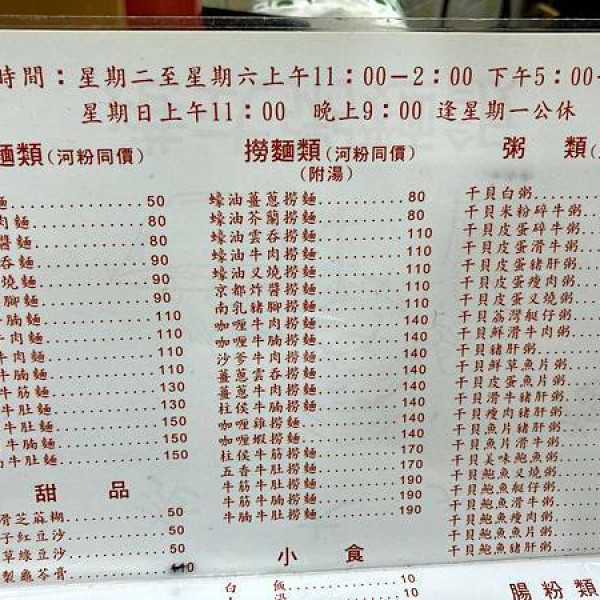 時間：星期二至星期六上午11：00－2：00 下午5：00－
星期日上午11：00 晚上9：00 逢星期一公休
麵類(河粉同價)
麵 50
肉麵 80
醬麵 80
吞麵 90
燒麵 90
腳麵 90
牛腩麵 110
牛肉麵 110
牛肉麵 110
牛腩麵 110
牛筋麵 130
牛肚麵 130
牛肚麵 150
牛腩麵 150
牛肚麵 150
甜品
滑芝麻糊
子紅豆沙
草綠豆沙
製龜苓膏
撈麵類(河粉同價)
(附湯)
蠔油薑蔥撈麵 80
蠔油芥蘭撈麵 80
蠔油雲吞撈麵 110
蠔油牛肉撈麵 110
蠔油叉燒撈麵 110
京都炸醬撈麵 110
南乳豬腳撈麵 110
咖喱牛肉撈麵 140
咖喱牛腩撈麵 140
沙爹牛肉撈麵 140
薑蔥雲吞撈麵 140
薑蔥牛肉撈麵 140
柱侯牛腩撈麵 140
咖喱雞撈麵 140
咖喱蝦撈麵 140
柱侯牛筋撈麵 170
五香牛肚撈麵 170
牛筋牛腩撈麵 190
牛筋牛肚撈麵 190
牛腩牛肚撈麵 190
小食
白飯 10
10
粥類(
干貝白粥
干貝米粉碎牛粥
干貝皮蛋碎牛粥
干貝皮蛋滑牛粥
干貝皮蛋豬肝粥
干貝皮蛋瘦肉粥
干貝皮蛋叉燒粥
干貝荔灣艇仔粥
干貝鮮滑牛肉粥
干貝豬肝粥
干貝鮮草魚片粥
干貝皮蛋魚片粥
干貝滑牛豬肝粥
干貝瘦肉豬肝粥
干貝魚片豬肝粥
干貝魚片滑牛粥
干貝美味鮑魚粥
干貝鮑魚叉燒粥
干貝鮑魚艇仔粥
干貝鮑魚滑牛粥
干貝鮑魚瘦肉粥
干貝鮑魚魚片粥
干貝鮑魚豬肝粥
腸粉類